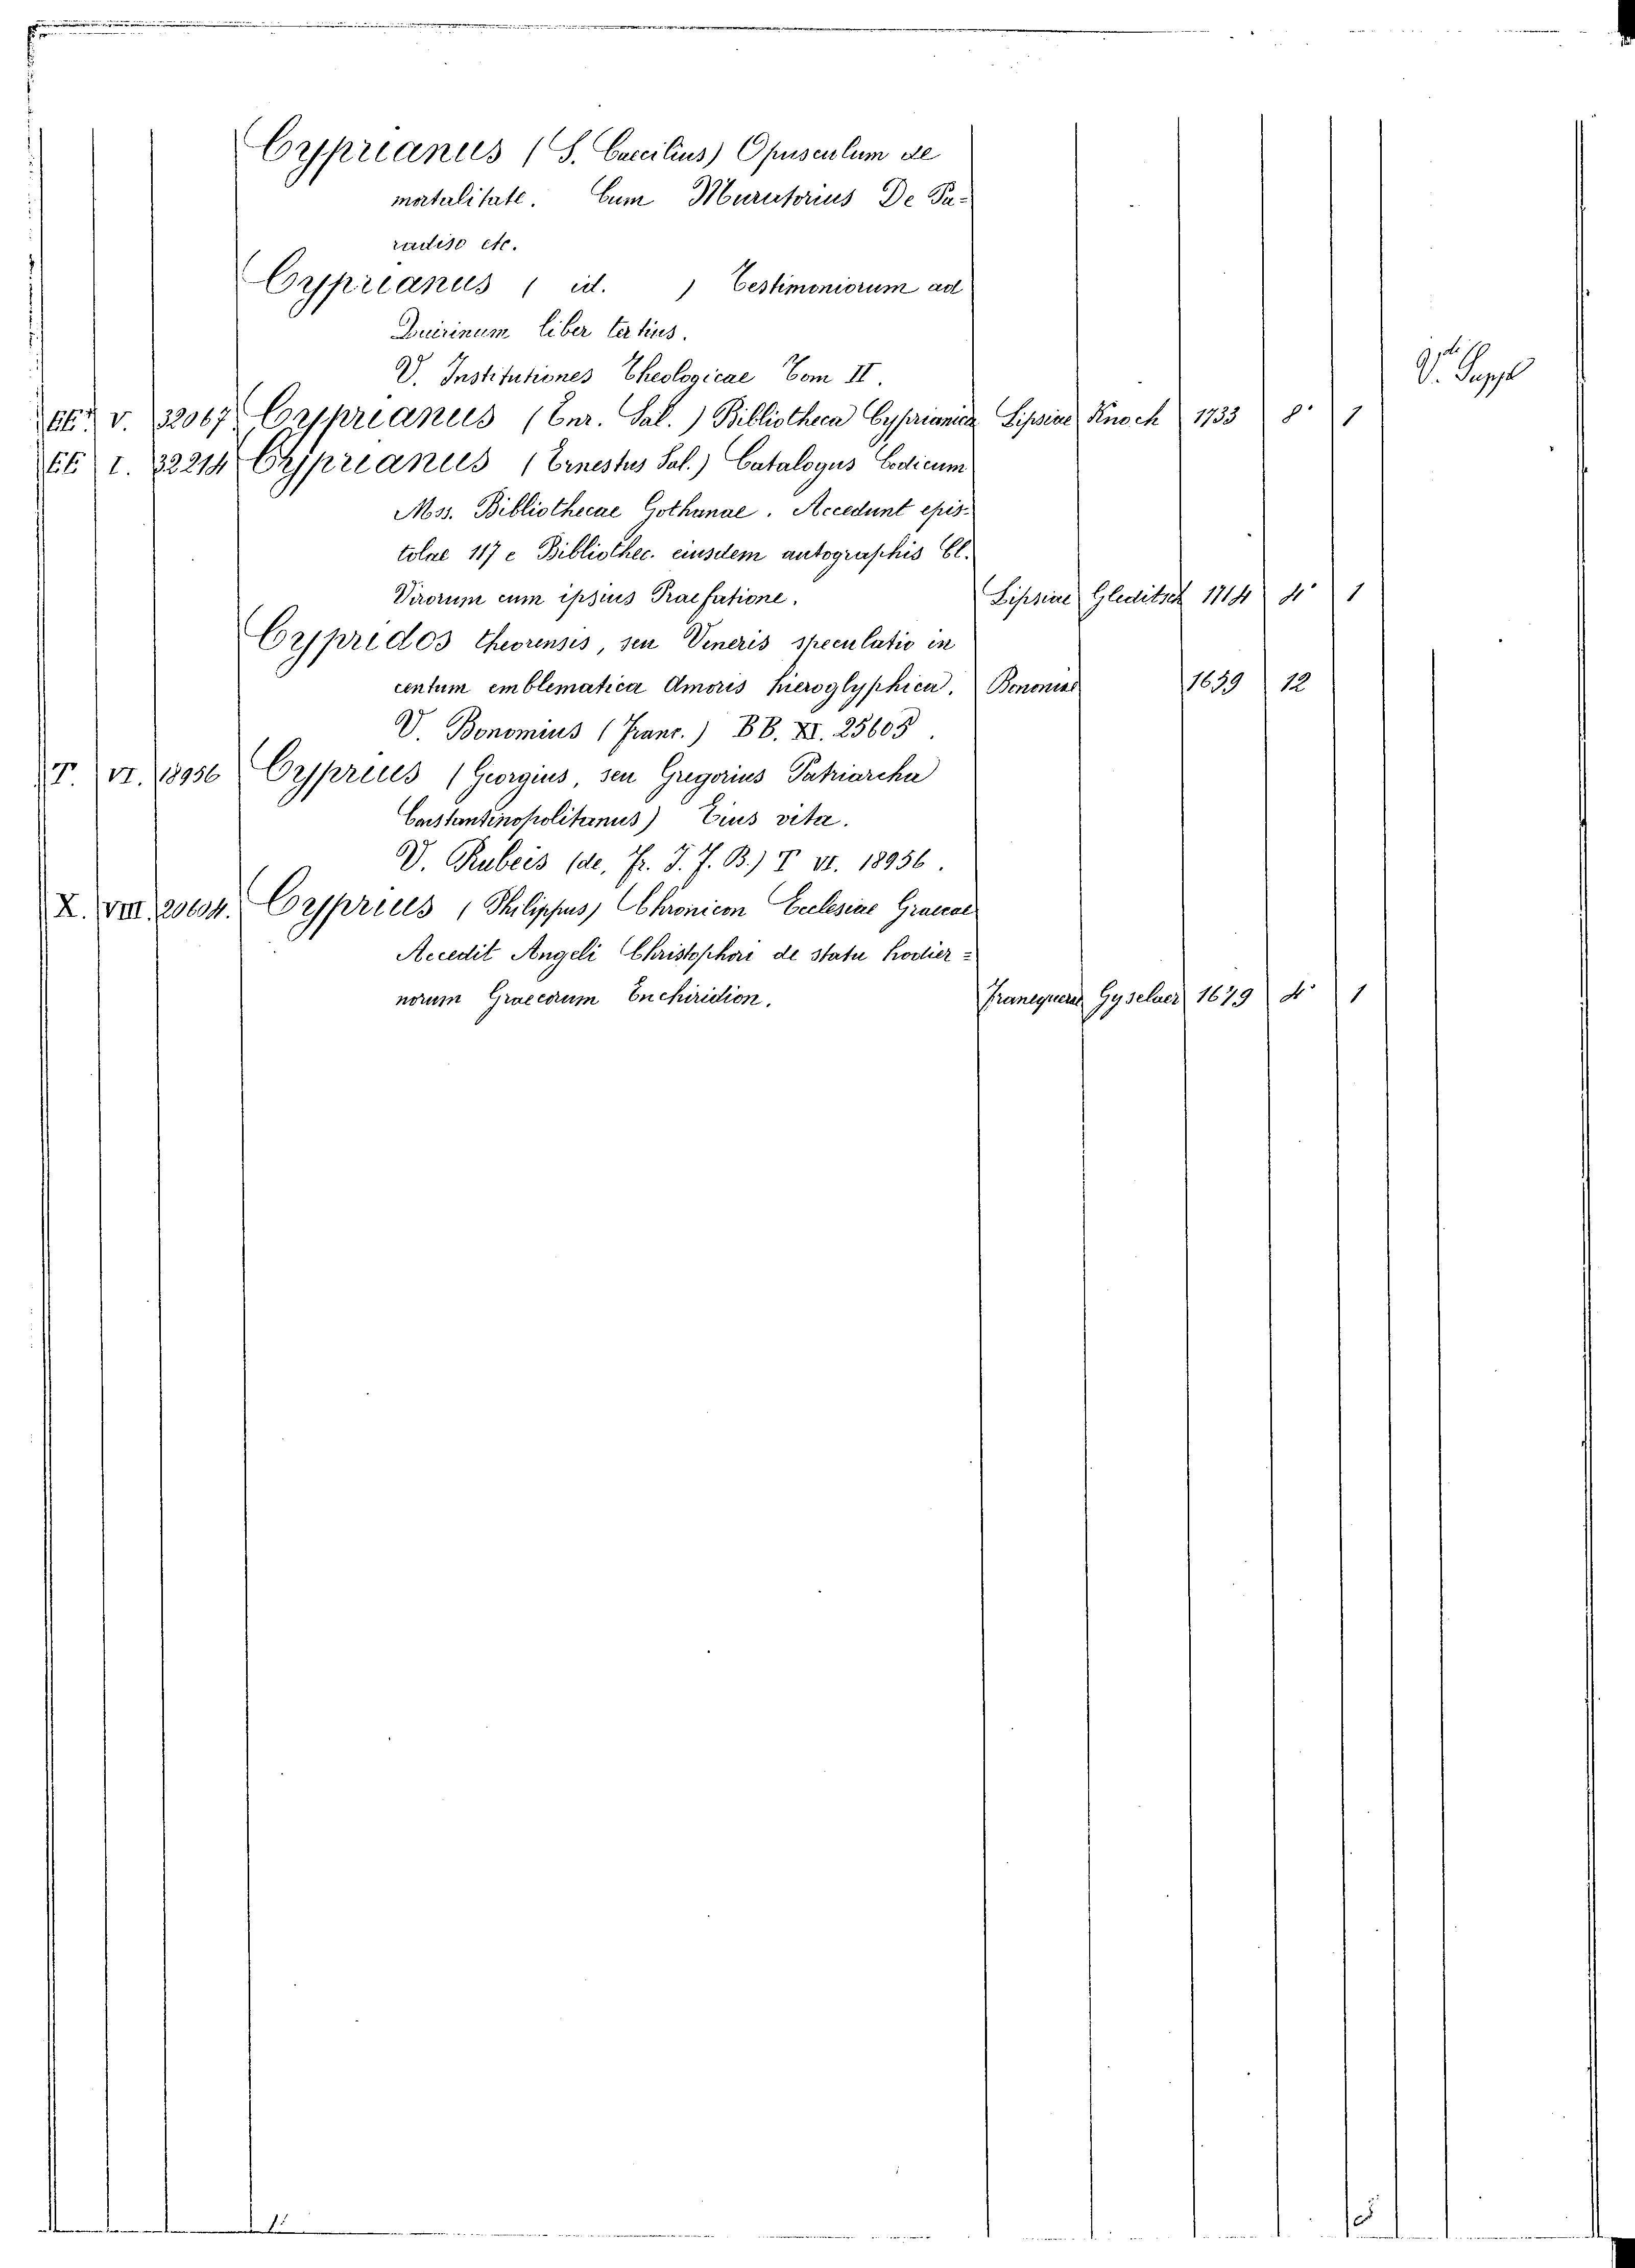 Cyprianus (S. Caecilius) Opusculum de
mortalitate. Cum Muratorius De Pa-
radiso etc.
Cyprianus ( id. ) Testimoniorum ad
Quirinum liber tertius.
V. Institutiones Theologicae Tom II.
V. Suppl
V. 32067 Cyprianus (Enr. Sal.) Bibliotheca Cyprianica Lipsiae Knoch 1733 8° 1
EE I. 32214 Cyprianus (Ernestus Sal.) Catalogus Codicum
Mss. Bibliothecae Gothanae. Accedunt epis-
tolae 117 e Bibliothec. eiusdem autographis Cl.
Virorum cum ipsius Praefatione. Lipsiae Gleditsch 1714 4° 1
Cypridos theorensis, seu Veneris speculatio in
centum emblematica Amoris hieroglyphica. Bononiae 1659 12
V. Bonomius (Franc.) BB. XI. 25605.
T. VI. 18956 Cyprius (Georgius, seu Gregorius Patriarcha
Constantinopolitanus) Eius vita.
V. Rubeis (de, Fr. J. F. B.) T VI. 18956.
X. VIII. 20604. Cyprius (Philippus) Chronicon Ecclesiae Graecae
Accedit Angeli Christophori de statu hodier=
norum Graecorum Enchiridion. Franequerae Gyselaer 1679 4° 1
5